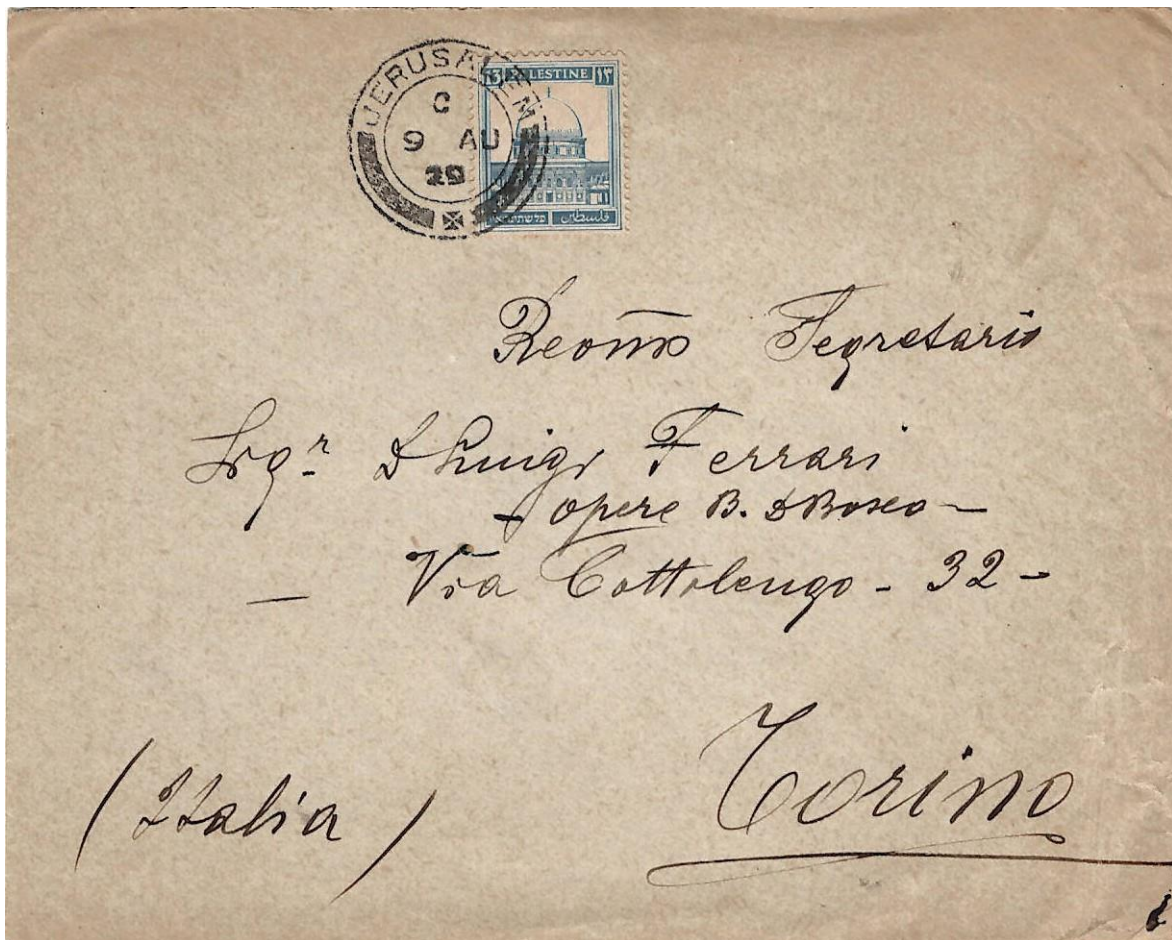 JERUSALEM
C
9 AU
29
PALESTINE ١٣
فلسطين
Segretario
Sigr D Luigi Ferrari
- opere B. D Bosco -
- Via Cottolengo - 32 -
Torino
(Italia)